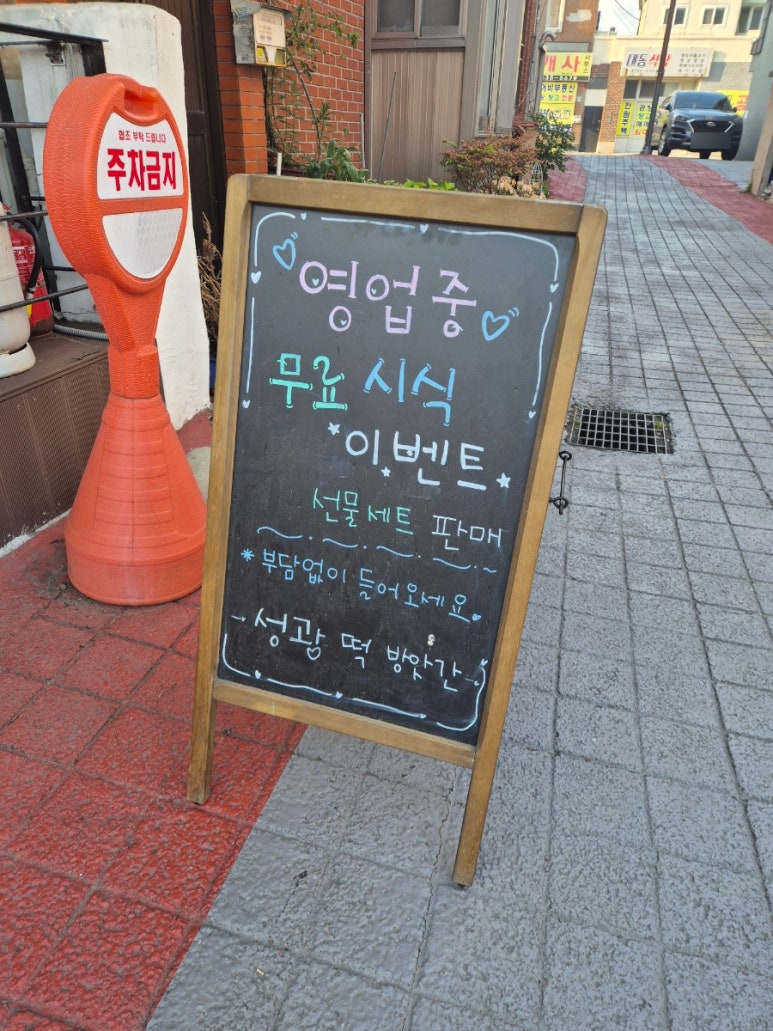 협조 부탁 드립니다
주차금지
영업중
무료 시식
이벤트
선물세트 판매
부담없이 들어오세요
성광 떡 방앗간